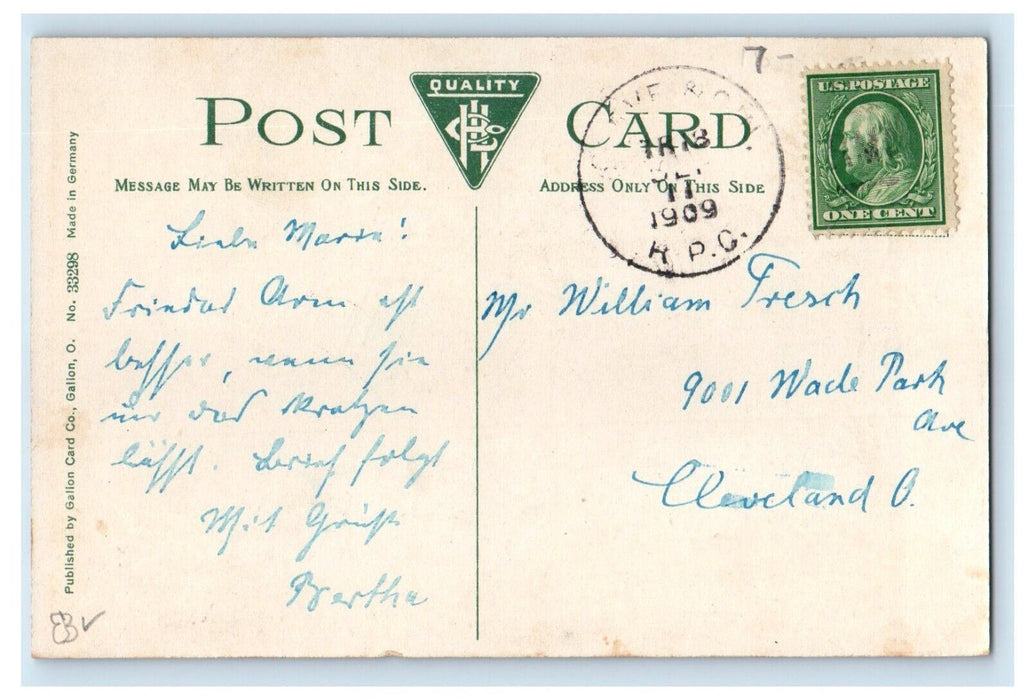 7-
POST CARD
QUALITY
U.S. POSTAGE
ONE CENT
MESSAGE MAY BE WRITTEN ON THIS SIDE.
ADDRESS ONLY ON THIS SIDE
TR 18
OCT
11
1909
R.P.O.
Liebe Marie!
Friedas Arm ist
besser, wenn sie
nur das Kratzen
läßt. Brief folgt
Mit Gruß
Bertha
Mr William Tresch
9001 Wade Park
Ave
Cleveland O.
Published by Galion Card Co., Galion, O. No. 33298 Made in Germany